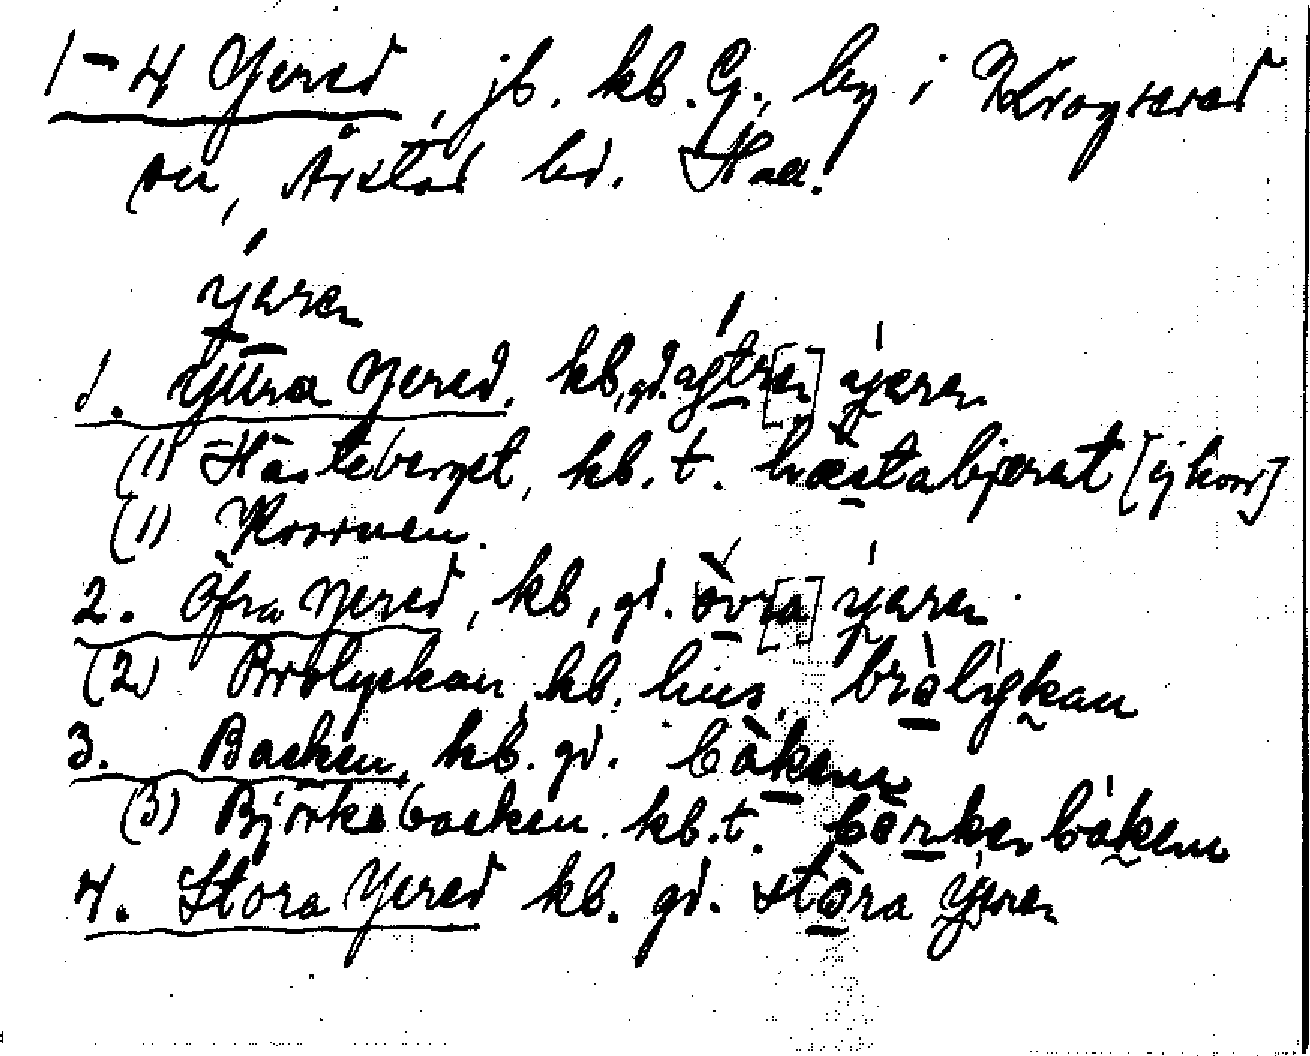 1-4 Yered, jb. kb. G., by i Krogsered
sn, Årstad hd. Hall.
ýaren
1. Yttra Yered, kb, gd. ýtre[n] ýaren
(1) Hästeberget, kb. t. hæ̀stabjærat [ej korr]
(1) Korsvuen.
2. Öfra Yered, kb, gd. övra ýaren
(2) Brolyckan, kb. hus, bròlýkan
3. Backen, kb. gd. bàken
(3) Björkebacken kb. t. bö̀rkebáken
4. Stora Yered kb. gd. stòra ýaren